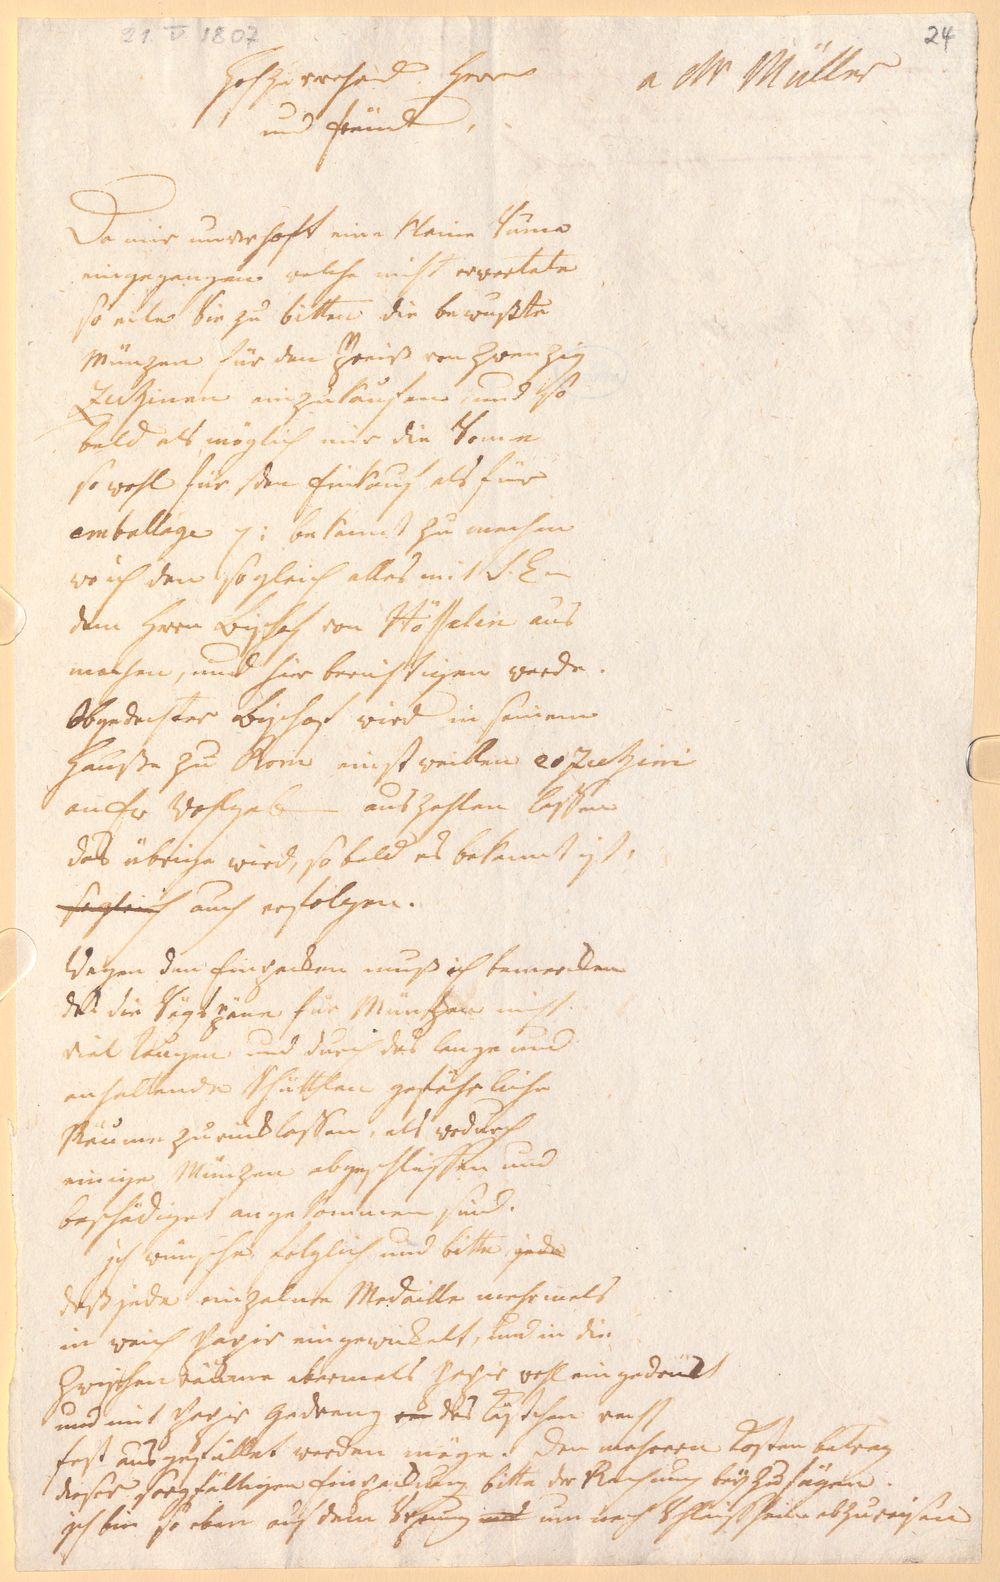 21. V 1807
24
a Mr Müller
Hochzuverehrend. Herr
und freünd,
Da mir unverhoft eine kleine Sume
eingegangen welche nicht erwartete
so eile Sie zu bitten die bewußte
Münzen für den Preiß von Zwenzig
Zechinen einzukaufen und so
bald als möglich mir die Some
so wohl für den Einkauf als für
emballage bekannt zu machen
wo ich den sogleich alles mit S. E
dem Herrn Bischof von Häffelin aus
machen, und hier berichtigen werde.
Obgedachter Bischof wird in seinem
Hauße zu Rom einstweillen 20 Zechini
an Ew Wohlgeb auszahlen lassen
das übrige wird, so bald es bekannt ist,
sogleich auch erfolgen.
Wegen dem Einpacken muß ich bemercken
das die Sägspäne für Münzen nicht
viel taugen und durch das lange und
anhaltende Schüttlen gefährliche
Räume zurücklassen, als wodurch
einige Münzen abgeschliffen und
beschädiget angekommen sind.
ich wünsche folglich und bitte jede
daß jede einzelne Medaille mehrmals
in weich Papir eingewickelt, und in die
Zwischenräume abermals Papir wohl eingedruckt
und mit Papir Gedreng das Kistchen recht
fest ausgefüllet werden möge. Den mehrern Kosten betrag
dieser sorgfältigen Einpackung bitte der Rechnung beyzufügen.
ich bin so eben auf dem Sprung um nach Schleisheim abzureisen